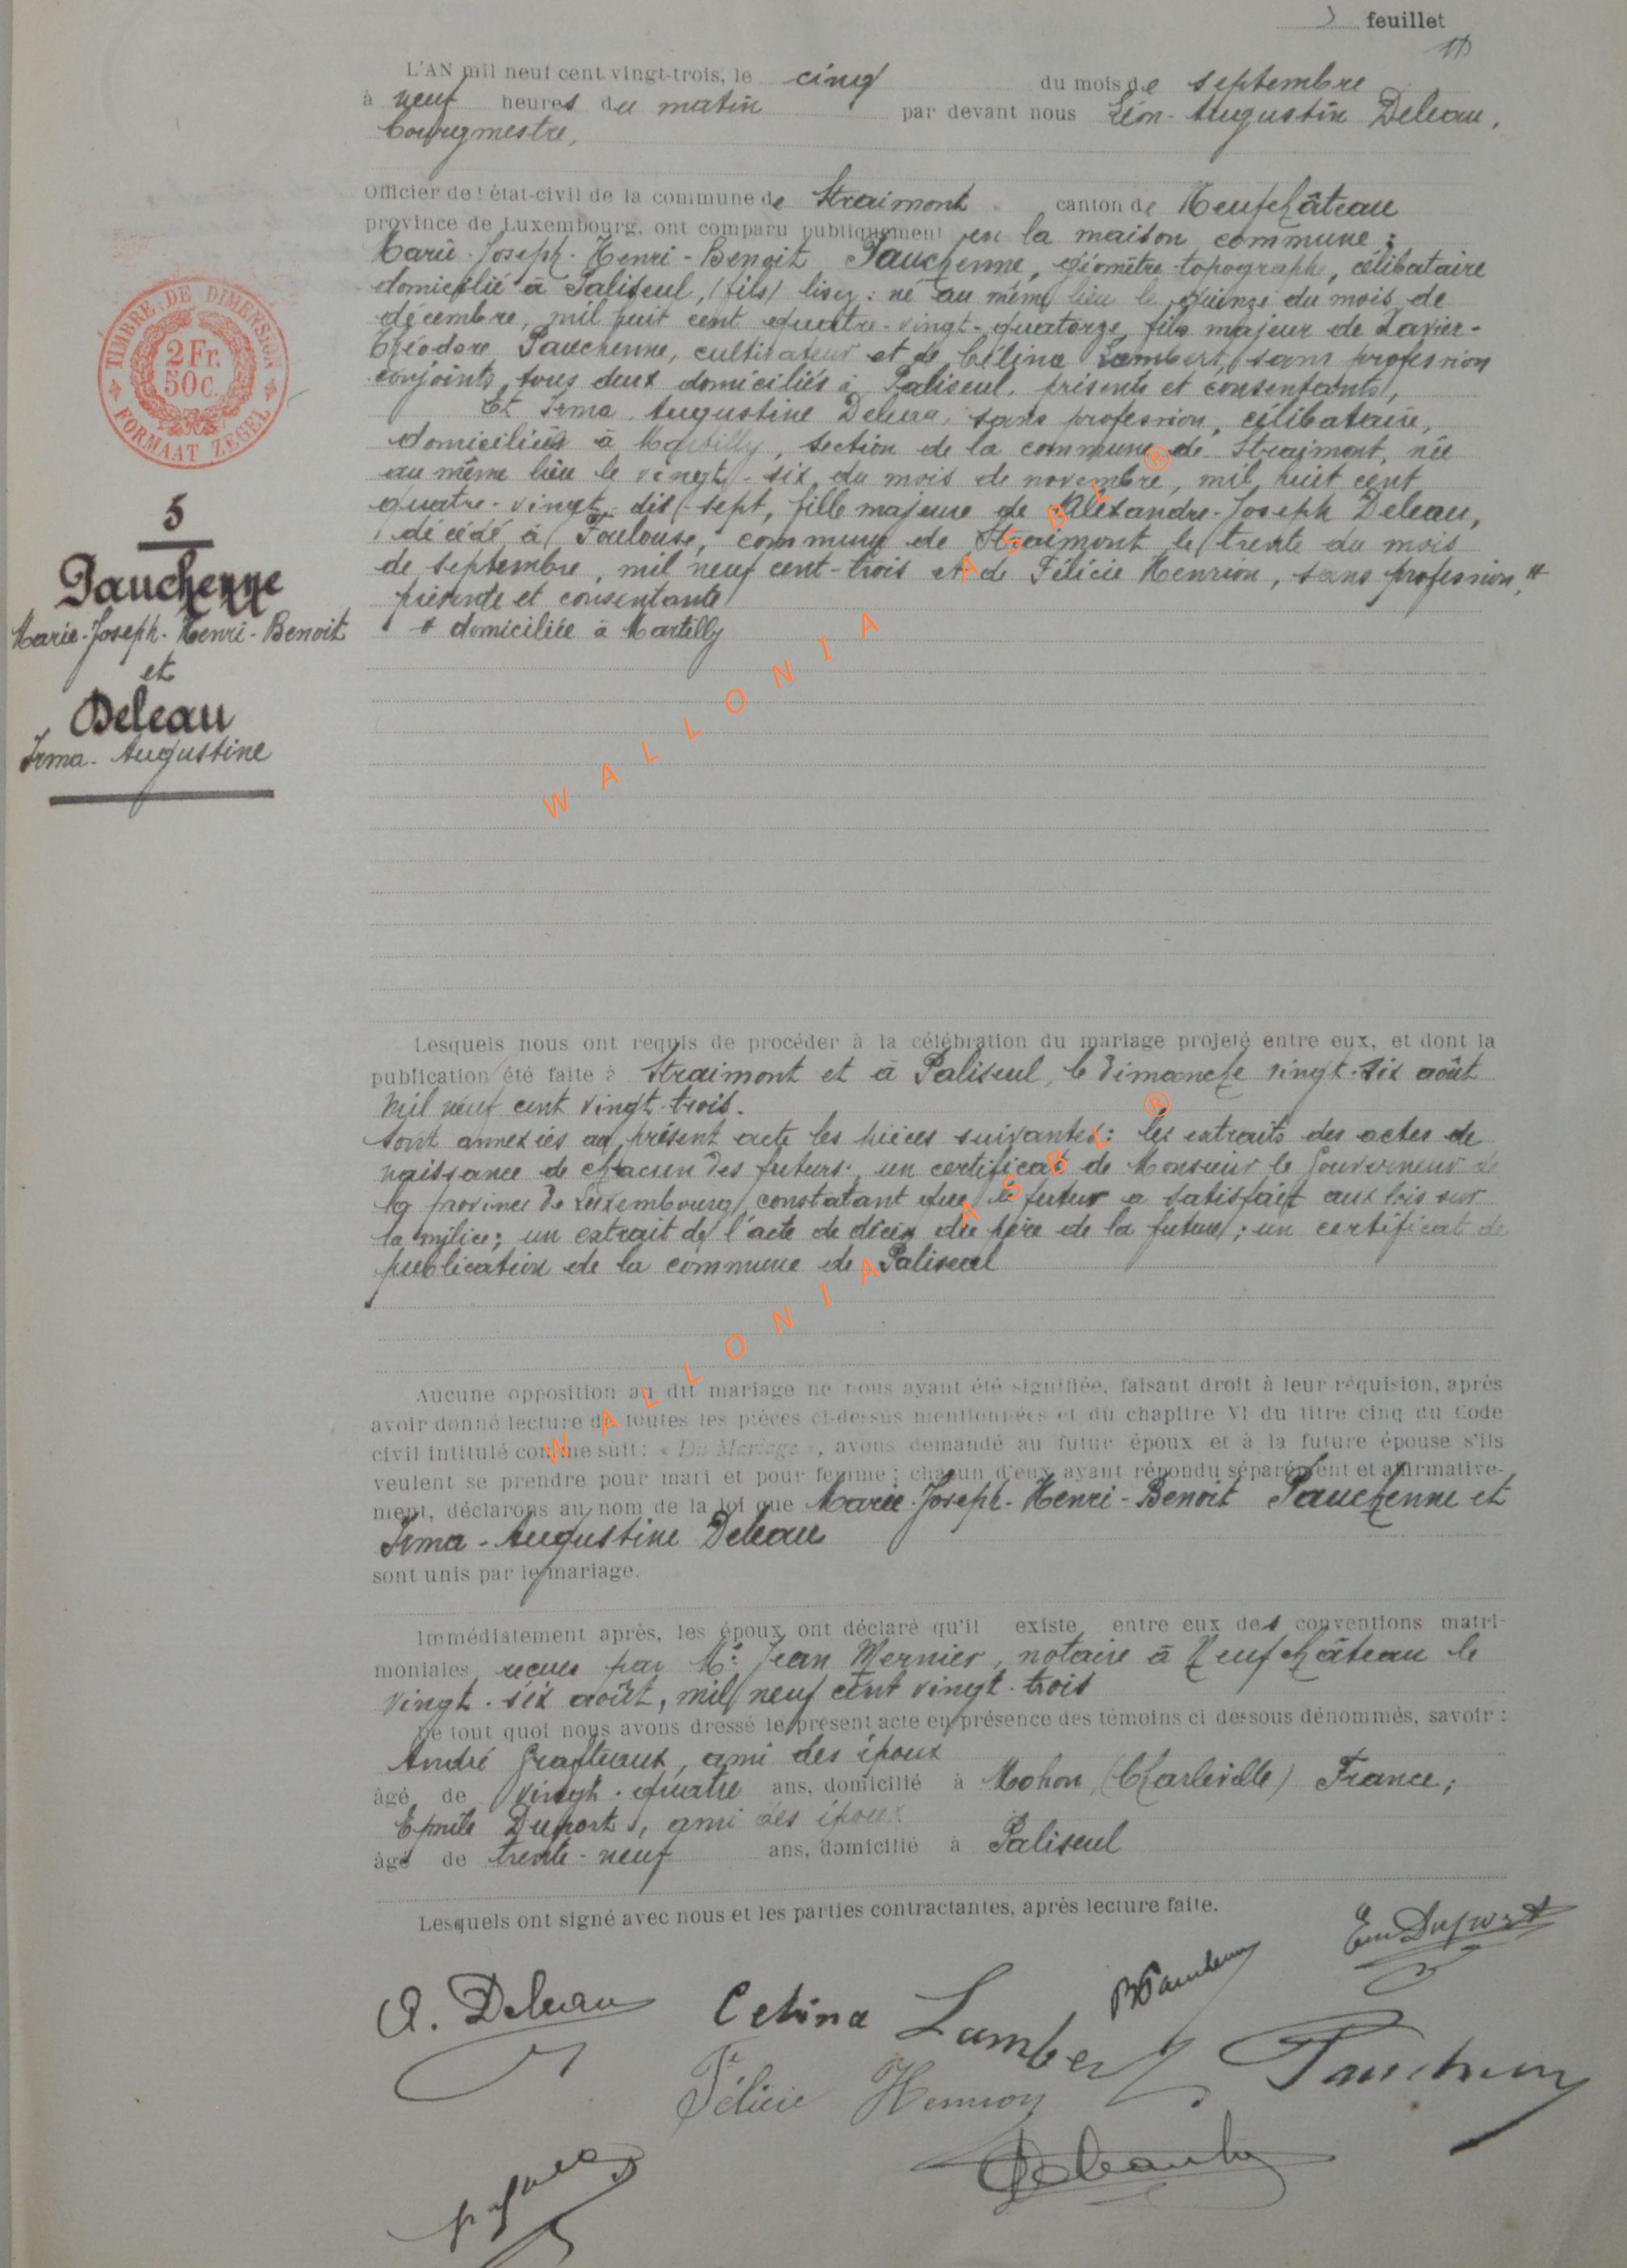 feuillet
L'AN mil neuf cent vingt-trois, le cinq du mois de septembre
à neuf heures du matin par devant nous Léon-Augustin Deleau,
bourgmestre,
Officier de l'état-civil de la commune de Straimont canton de Neufchâteau
province de Luxembourg, ont comparu publiquement en la maison commune :
Marie-Joseph-Henri-Benoit Pauchenne, géomètre-topographe, célibataire
domicilié à Paliseul, (fils) lisez : né au même lieu le quinze du mois de
décembre, mil huit cent quatre-vingt-quatorze, fils majeur de Xavier-
Théodore Pauchenne, cultivateur et de Célina Lambert, sans profession
conjoints, tous deux domiciliés à Paliseul, présents et consentants,
Et Irma Augustine Deleau, sans profession, célibataire,
domiciliée à Martilly, section de la commune de Straimont, née
au même lieu le vingt-six du mois de novembre, mil huit cent
quatre-vingt-dix-sept, fille majeure de Alexandre-Joseph Deleau,
décédé à Toulouse, commune de Straimont le trente du mois
de septembre, mil neuf cent-trois et de Félicie Henrion, sans profession, #
présente et consentante
# domiciliée à Martilly
TIMBRE DE DIMENSION
2 Fr.
50 C.
FORMAAT ZEGEL
5
Pauchenne
Marie-Joseph-Henri-Benoit
et
Deleau
Irma-Augustine
WALLONIA ASBL ®
Lesquels nous ont requis de procéder à la célébration du mariage projeté entre eux, et dont la
publication été faite à Straimont et à Paliseul, le dimanche vingt-six août
mil neuf cent vingt-trois.
Sont annexées au présent acte les pièces suivantes : les extraits des actes de
naissance de chacun des futurs, un certificat de Monsieur le Gouverneur de
la province de Luxembourg, constatant que le futur a satisfait aux lois sur
la milice ; un extrait de l'acte de décès du père de la future ; un certificat de
publication de la commune de Paliseul
WALLONIA ASBL ®
Aucune opposition au dit mariage ne nous ayant été signifiée, faisant droit à leur réquision, après
avoir donné lecture de toutes les pièces ci-dessus mentionnées et du chapitre VI du titre cinq du Code
civil intitulé comme suit : « Du Mariage », avons demandé au futur époux et à la future épouse s'ils
veulent se prendre pour mari et pour femme ; chacun d'eux ayant répondu séparément et affirmative-
ment, déclarons au nom de la loi que Marie-Joseph-Henri-Benoit Pauchenne et
Irma-Augustine Deleau
sont unis par le mariage.
Immédiatement après, les époux ont déclaré qu'il existe entre eux des conventions matri-
moniales reçues par Me Jean Mernier, notaire à Neufchâteau le
vingt-six août, mil neuf cent vingt-trois
De tout quoi nous avons dressé le présent acte en présence des témoins ci dessous dénommés, savoir :
André Grafteaux, ami des époux
âgé de vingt-quatre ans, domicilié à Mohon (Charleville) France ;
Emile Duport, ami des époux
âgé de trente-neuf ans, domicilié à Paliseul
Lesquels ont signé avec nous et les parties contractantes, après lecture faite.
Em Duport
A. Deleau Celina Lambert B Pauchenne
Félicie Henrion Pauchenne